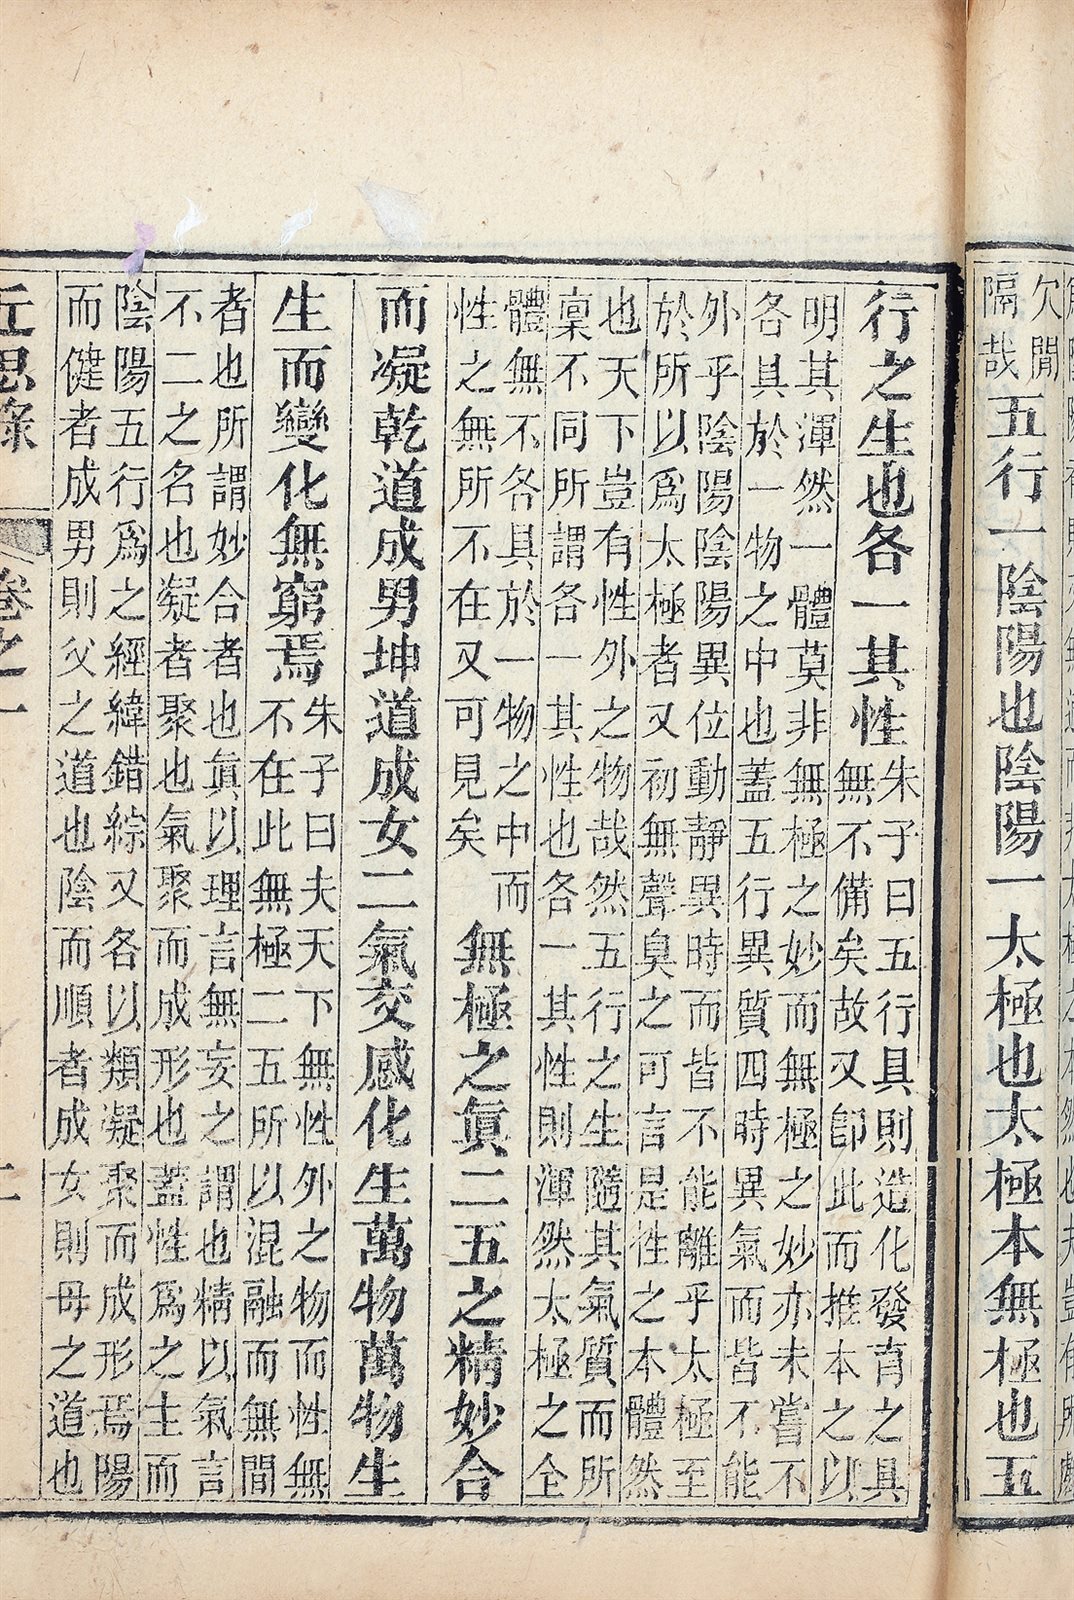 欠閒
隔哉
五行一陰陽也陰陽一太極也太極本無極也五
行之生也各一其性
朱子曰五行具則造化發育之具
無不備矣故又卽此而推本之以
明其渾然一體莫非無極之妙而無極之妙亦未嘗不
各具於一物之中也蓋五行異質四時異氣而皆不能
外乎陰陽陰陽異位動靜異時而皆不能離乎太極至
於所以爲太極者又初無聲臭之可言是性之本體然
也天下豈有性外之物哉然五行之生隨其氣質而所
稟不同所謂各一其性也各一其性則渾然太極之全
體無不各具於一物之中而
性之無所不在又可見矣
無極之眞二五之精妙合
而凝乾道成男坤道成女二氣交感化生萬物萬物生
生而變化無窮焉
朱子曰夫天下無性外之物而性無
不在此無極二五所以混融而無間
者也所謂妙合者也眞以理言無妄之謂也精以氣言
不二之名也凝者聚也氣聚而成形也蓋性爲之主而
陰陽五行爲之經緯錯綜又各以類凝聚而成形焉陽
而健者成男則父之道也陰而順者成女則母之道也
近思錄 卷之一 二